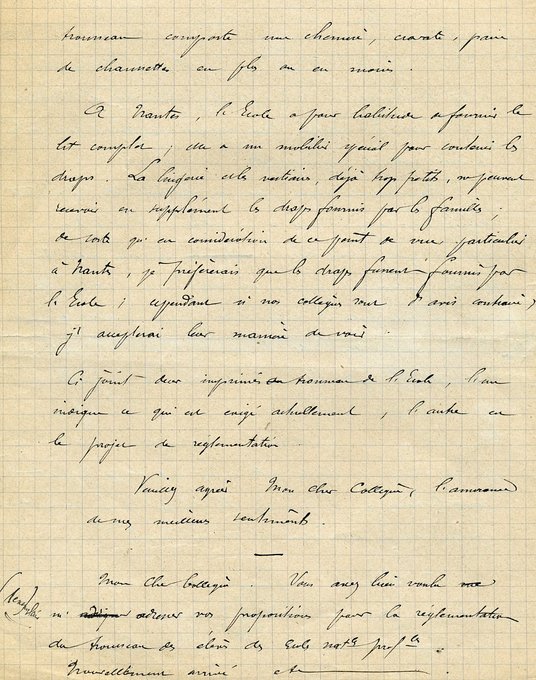 trousseau comporte une chemise, cravate, paire
de chaussettes en plus ou en moins.
A Nantes, l'Ecole a pour habitude de fournir le
lit complet ; elle a un mobilier spécial pour contenir les
draps. La lingerie et les vestiaires, déjà trop petits, ne peuvent
recevoir en supplément les draps fournis par les familles ;
de sorte qu'en considération de ce point de vue particulier
à Nantes, je préfèrerais que les draps fussent fournis par
l'Ecole ; cependant si nos collègues sont d'avis contraire,
j'accepterai leur manière de voir.
Ci joint deux imprimés du trousseau de l'Ecole, l'un
indique ce qui est exigé actuellement, l'autre est
le projet de réglementation.
Veuillez agréer Mon cher Collègue, l'assurance
de mes meilleurs sentiments.
Mon cher Collègue. Vous avez bien voulu
m' adresser vos propositions pour la réglementation
du trousseau des élèves des Ecoles natles profles.
Nouvellement arrivé etc